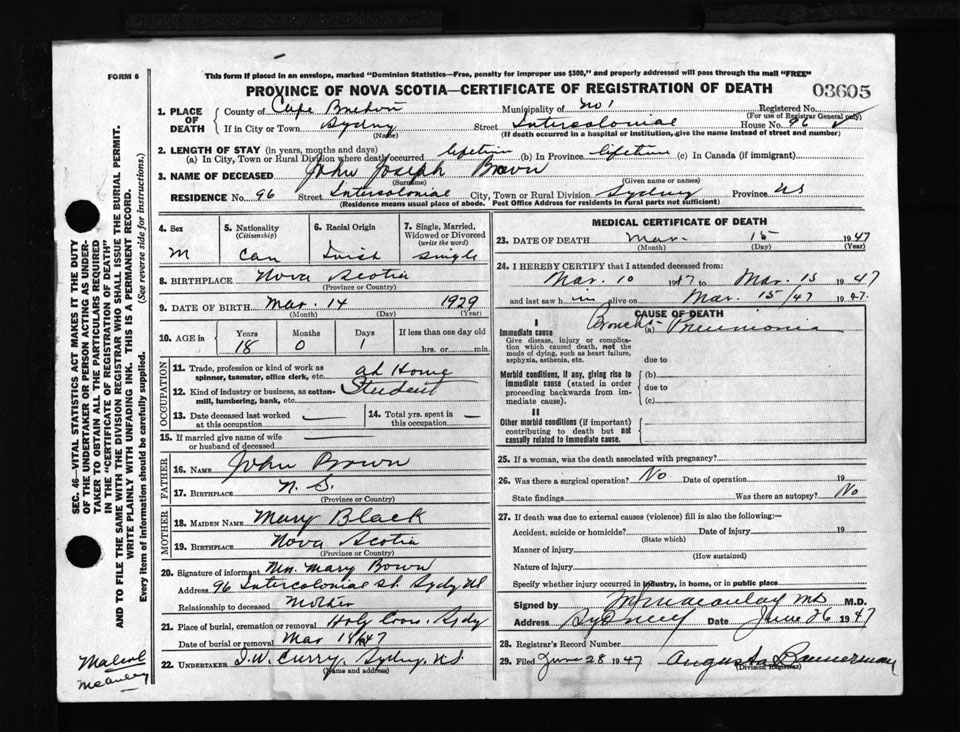 FORM 6
This form if placed in an envelope, marked "Dominion Statistics—Free, penalty for improper use $300," and properly addressed will pass through the mail "FREE"
PROVINCE OF NOVA SCOTIA—CERTIFICATE OF REGISTRATION OF DEATH
03605
1. PLACE OF DEATH
County of Cape Breton Municipality of No 1 Registered No.
(For use of Registrar General only)
If in City or Town Sydney Street Intercolonial House No. 96
(Name) (If death occurred in a hospital or institution, give the name instead of street and number)
2. LENGTH OF STAY (in years, months and days)
(a) In City, Town or Rural Division where death occurred lifetime (b) In Province lifetime (c) In Canada (if immigrant)
3. NAME OF DECEASED John Joseph Brown
(Surname) (Given name or names)
RESIDENCE No. 96 Street Intercolonial City, Town or Rural Division Sydney Province NS
(Residence means usual place of abode. Post Office Address for residents in rural parts not sufficient)
4. Sex M
5. Nationality (Citizenship) Can
6. Racial Origin
7. Single, Married, Widowed or Divorced (write the word) Single
8. BIRTHPLACE Nova Scotia
(Province or Country)
9. DATE OF BIRTH Mar. 14 1929
(Month) (Day) (Year)
10. AGE in Years Months Days If less than one day old
18 0 1 hrs. or min.
OCCUPATION
11. Trade, profession or kind of work as spinner, teamster, office clerk, etc. at Home
12. Kind of industry or business, as cotton-mill, lumbering, bank, etc. Student
13. Date deceased last worked at this occupation —
14. Total yrs. spent in this occupation —
15. If married give name of wife or husband of deceased —
FATHER
16. NAME John Brown
17. BIRTHPLACE N. S.
(Province or Country)
MOTHER
18. MAIDEN NAME Mary Black
19. BIRTHPLACE Nova Scotia
(Province or Country)
20. Signature of informant Mrs. Mary Brown
Address 96 Intercolonial St. Sydney NS
Relationship to deceased Mother
21. Place of burial, cremation or removal Holy Cross. Sydy
Date of burial or removal Mar 18/47
22. UNDERTAKER J.W. Curry, Sydney, N.S.
(Name and address)
MEDICAL CERTIFICATE OF DEATH
23. DATE OF DEATH Mar. 15 1947
(Month) (Day) (Year)
24. I HEREBY CERTIFY that I attended deceased from:
Mar. 10 1947 to Mar. 15 1947
and last saw h im alive on Mar. 15/47 1947.
CAUSE OF DEATH
I
Immediate cause (a) Broncho-Pneumonia
Give disease, injury or complication which caused death, not the mode of dying, such as heart failure, asphyxia, asthenia, etc.
due to
Morbid conditions, if any, giving rise to immediate cause (stated in order proceeding backwards from immediate cause).
(b)
due to
(c)
II
Other morbid conditions (if important) contributing to death but not causally related to immediate cause.
25. If a woman, was the death associated with pregnancy?
26. Was there a surgical operation? No Date of operation 19
State findings Was there an autopsy? No
27. If death was due to external causes (violence) fill in also the following:—
Accident, suicide or homicide? Date of injury 19
(State which)
Manner of injury
(How sustained)
Nature of injury
Specify whether injury occurred in industry, in home, or in public place
Signed by M Macaulay MD M.D.
Address Sydney Date June 26 1947
28. Registrar's Record Number
29. Filed June 28 1947 Augusta Bannerman
(Division Registrar)
SEC. 46—VITAL STATISTICS ACT MAKES IT THE DUTY
OF THE UNDERTAKER OR PERSON ACTING AS UNDER-
TAKER TO OBTAIN ALL THE PARTICULARS REQUIRED
IN THE "CERTIFICATE OF REGISTRATION OF DEATH"
AND TO FILE THE SAME WITH THE DIVISION REGISTRAR WHO SHALL ISSUE THE BURIAL PERMIT.
WRITE PLAINLY WITH UNFADING INK. THIS IS A PERMANENT RECORD.
Every item of information should be carefully supplied. (See reverse side for instructions.)
McAuley